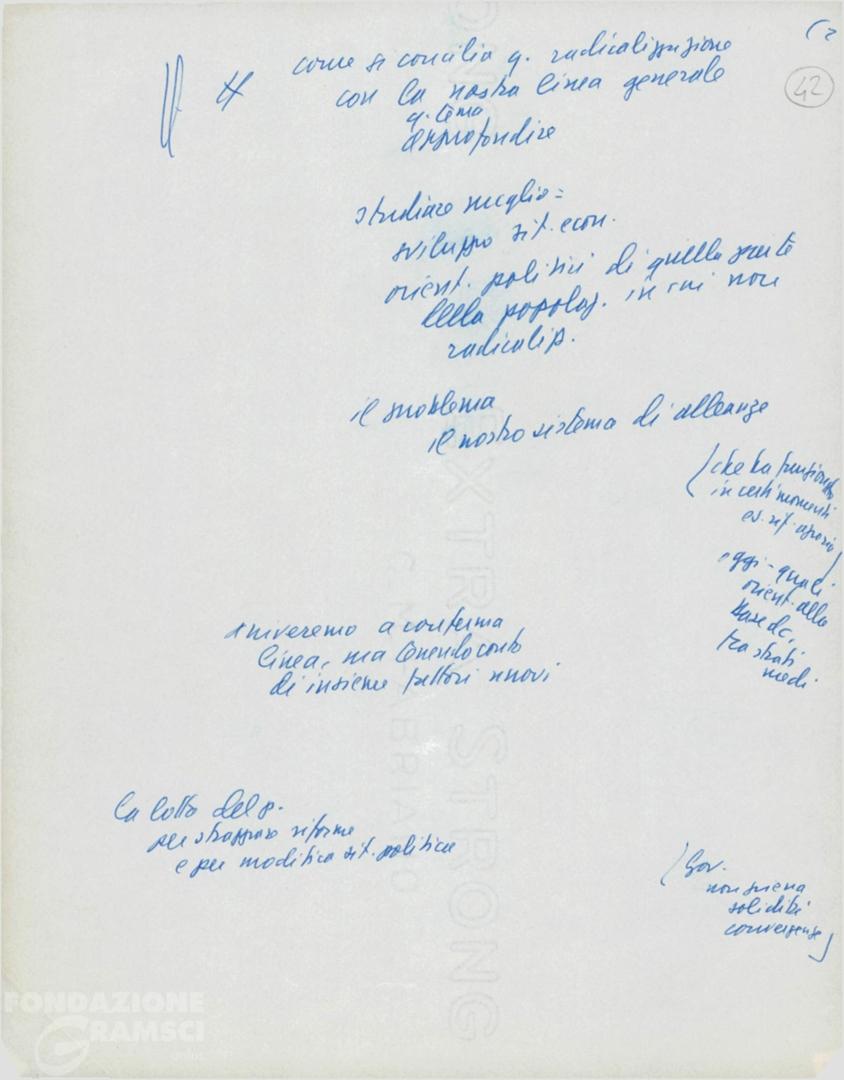 (2
42
come si concilia q. radicalizzazione
con la nostra linea generale
q. tema
approfondire
studiare meglio =
sviluppo sit. econ.
orient. politici di quella parte
della popolaz. in cui non
radicaliz.
il problema
il nostro sistema di alleanze
(che ha funzionato
in certi momenti
es. sit.
oggi - quali
orient. alla
base dc,
tra strati
medi
arriveremo a conferma
linea, ma tenendo conto
di insieme fattori nuovi
la lotta del p.
per strappare riforme
e per modifica sit. politica
(Gov.
non piena
solidità
convergenze)
FONDAZIONE
GRAMSCI
EXTRA STRONG
FABRIANO